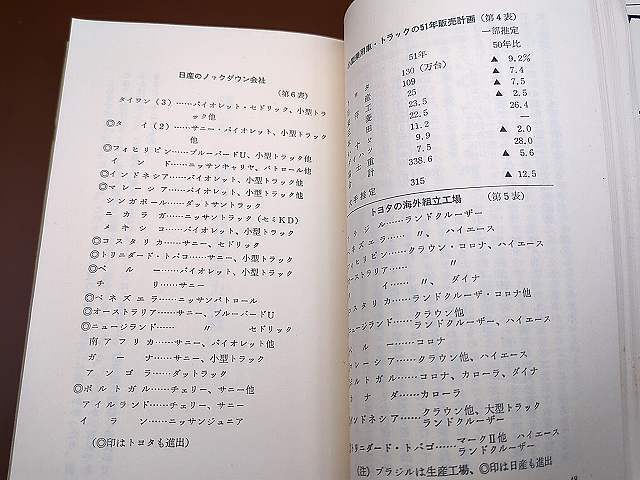 日産のノックダウン会社
(第6表)
タイワン(3)……バイオレット・セドリック、小型トラ
ック他
◎タイ(2)……サニー・バイオレット、小型トラック
他
◎フィヒリピン……ブルーバードU、小型トラック他
インド……ニッサンキャリヤ、パトロール他
◎インドネシア……バイオレット、小型トラック他
◎マレーシア……バイオレット、小型トラック他
シンガポール……ダットサントラック
ニカラガ……ニッサントラック(セミKD)
メキシコ……バイオレット、小型トラック他
◎コスタリカ……サニー、セドリック
◎トリニダード・トバコ……サニー、小型トラック
◎ペルー……バイオレット、小型トラック
チリ……サニー
◎ベネズエラ……ニッサンパトロール
◎オーストラリア……サニー、ブルーバードU
◎ニュージランド…… 〃 セドリック
南アフリカ……サニー、バイオレット他
ガーナ……サニー、小型トラック
アンゴラ……ダットラック
◎ポルトガル……チェリー、サニー他
アイルランド……チェリー、サニー
イラン……ニッサンジュニア
(◎印はトヨタも進出)
車・トラックの51年販売計画(第4表)
一部推定
51年 50年比
130(万台) ▲ 9.2%
109 ▲ 7.4
25 ▲ 7.5
23.5 ▲ 2.5
22.5 26.4
11.2 ―
9.9 ▲ 2.0
7.5 28.0
計 338.6 ▲ 5.6
推定 315 ▲ 12.5
トヨタの海外組立工場 (第5表)
ジル……ランドクルーザー
ズエラ…… 〃、ハイエース
ィヒリピン……クラウン・コロナ、ハイエース
ーストラリア…… 〃
イ…… 〃、ダイナ
スタリカ……ランドクルーザ・コロナ他
ュージランド……クラウン他
ランドクルーザー、ハイエース
ルー……コロナ
レーシア……クラウン他、ハイエース
ルトガル……コロナ、カローラ、ダイナ
ナダ……カローラ
ンドネシア……クラウン他、大型トラック
ランドクルーザー
トリニダード・トバゴ……マークⅡ他 ハイエース
ランドクルーザー
(注) ブラジルは生産工場、◎印は日産も進出